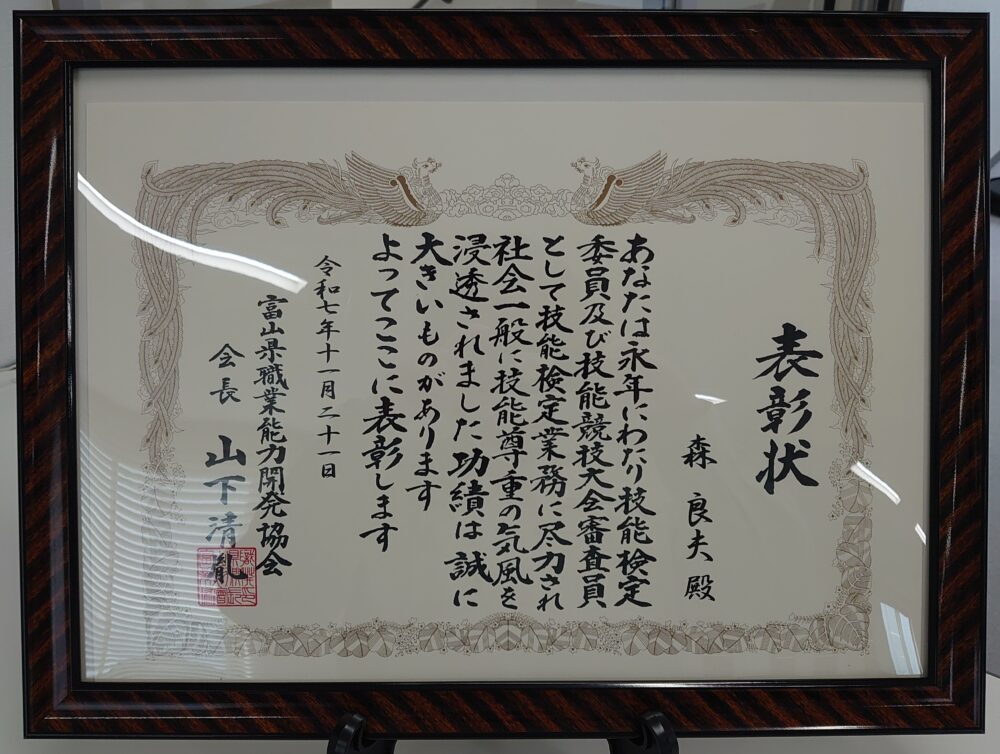 表彰状
森良夫殿
あなたは永年にわたり技能検定
委員及び技能競技大会審査員
として技能検定業務に尽力され
社会一般に技能尊重の気風を
浸透されました功績は誠に
大きいものがあります
よってここに表彰します
令和七年十一月二十一日
富山県職業能力開発協会
会長 山下清胤